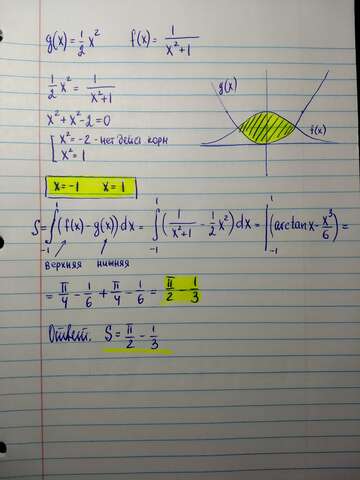 g(x) = 1/2 x² f(x) = 1/(x²+1)
1/2 x² = 1/(x²+1)
g(x)
x² + x² - 2 = 0
f(x)
[ x² = -2 - нет действ корн
x² = 1
x = -1 x = 1
S = ∫₋₁¹ (f(x) - g(x)) dx = ∫₋₁¹ (1/(x²+1) - 1/2 x²) dx = |₋₁¹ (arctan x - x³/6) =
верхняя нижняя
= π/4 - 1/6 + π/4 - 1/6 = π/2 - 1/3
Ответ: S = π/2 - 1/3